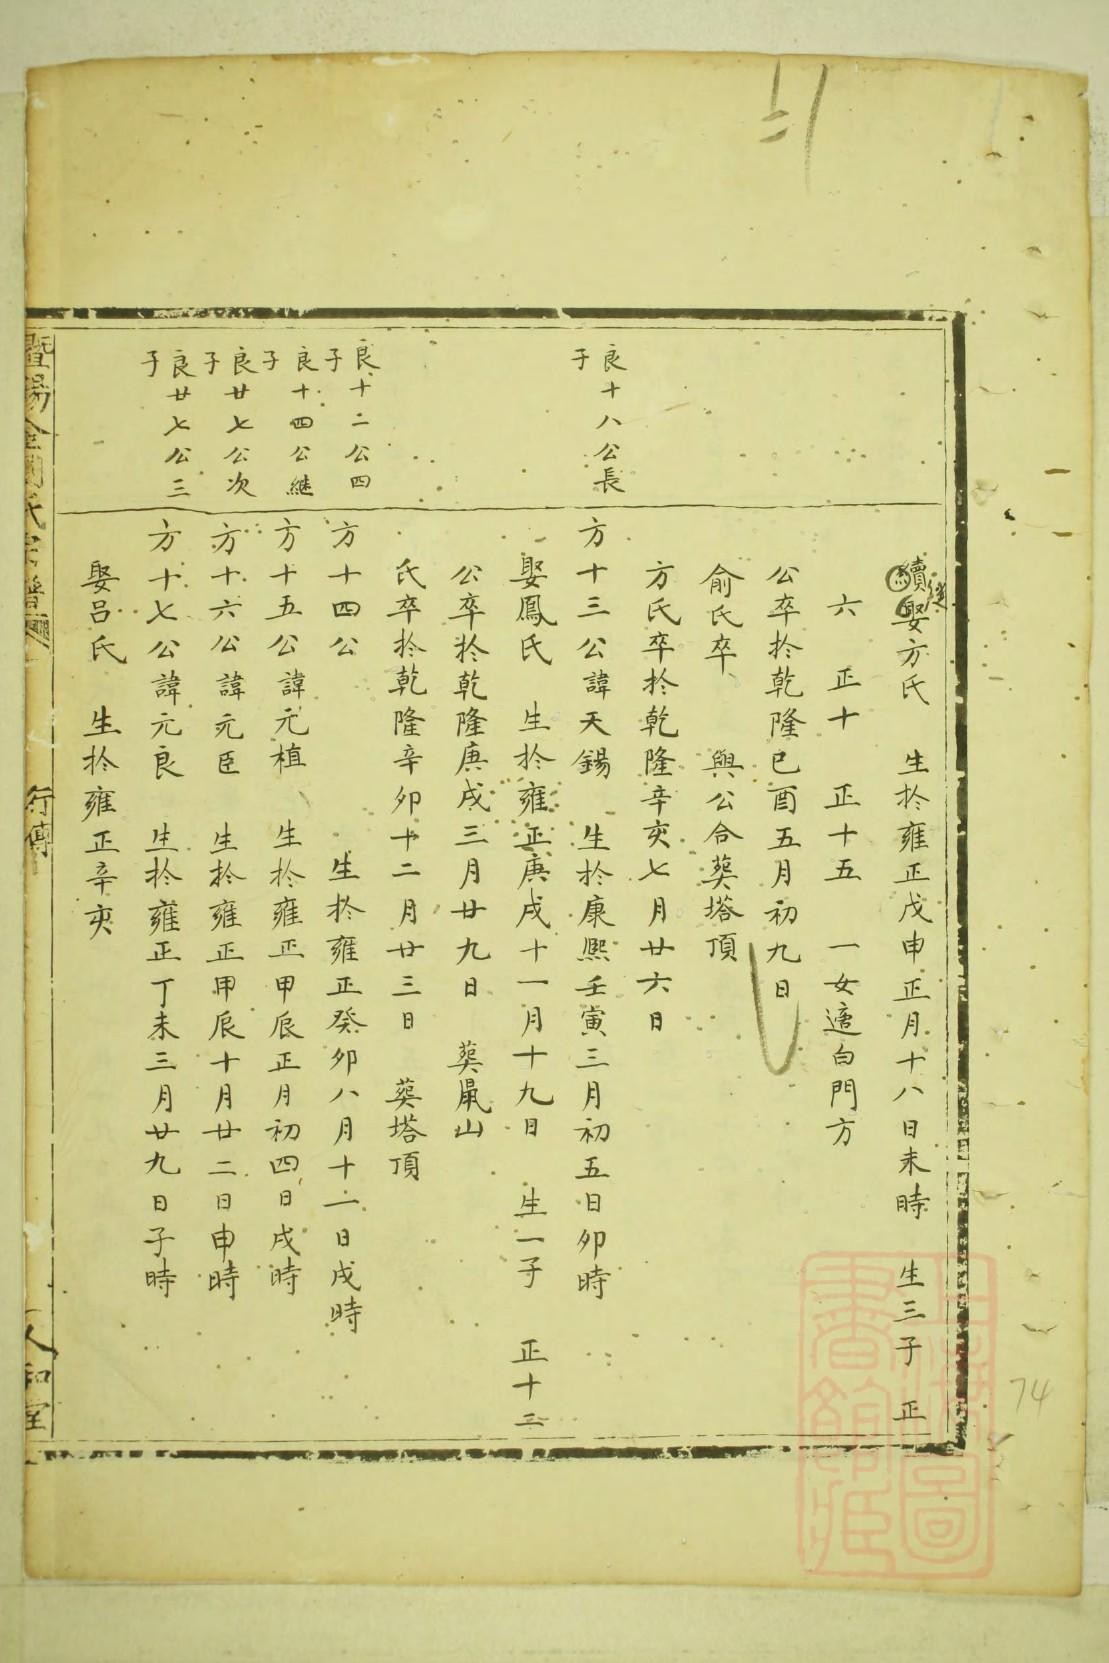 續娶方氏　生於雍正戊申正月十八日未時　生三子　正
六　正十　正十五　一女適白門方
公卒於乾隆己酉五月初九日
俞氏卒　與公合葬塔頂
方氏卒於乾隆辛亥七月廿六日
良十八公長
子
方十三公諱天錫　生於康熙壬寅三月初五日卯時
娶鳳氏　生於雍正庚戌十一月十九日　生一子　正十二
公卒於乾隆庚戌三月廿九日　葬鼠山
氏卒於乾隆辛卯十二月廿三日　葬塔頂
良十二公四
子
方十四公　　生於雍正癸卯八月十一日戌時
良十四公繼
子
方十五公諱元植　生於雍正甲辰正月初四日戌時
良廿七公次
子
方十六公諱元臣　生於雍正甲辰十月廿二日申時
良廿七公三
子
方十七公諱元良　生於雍正丁未三月廿九日子時
娶呂氏　生於雍正辛亥
暨陽金澗氏宗譜
行傳
人和堂
74
上海圖
書館藏